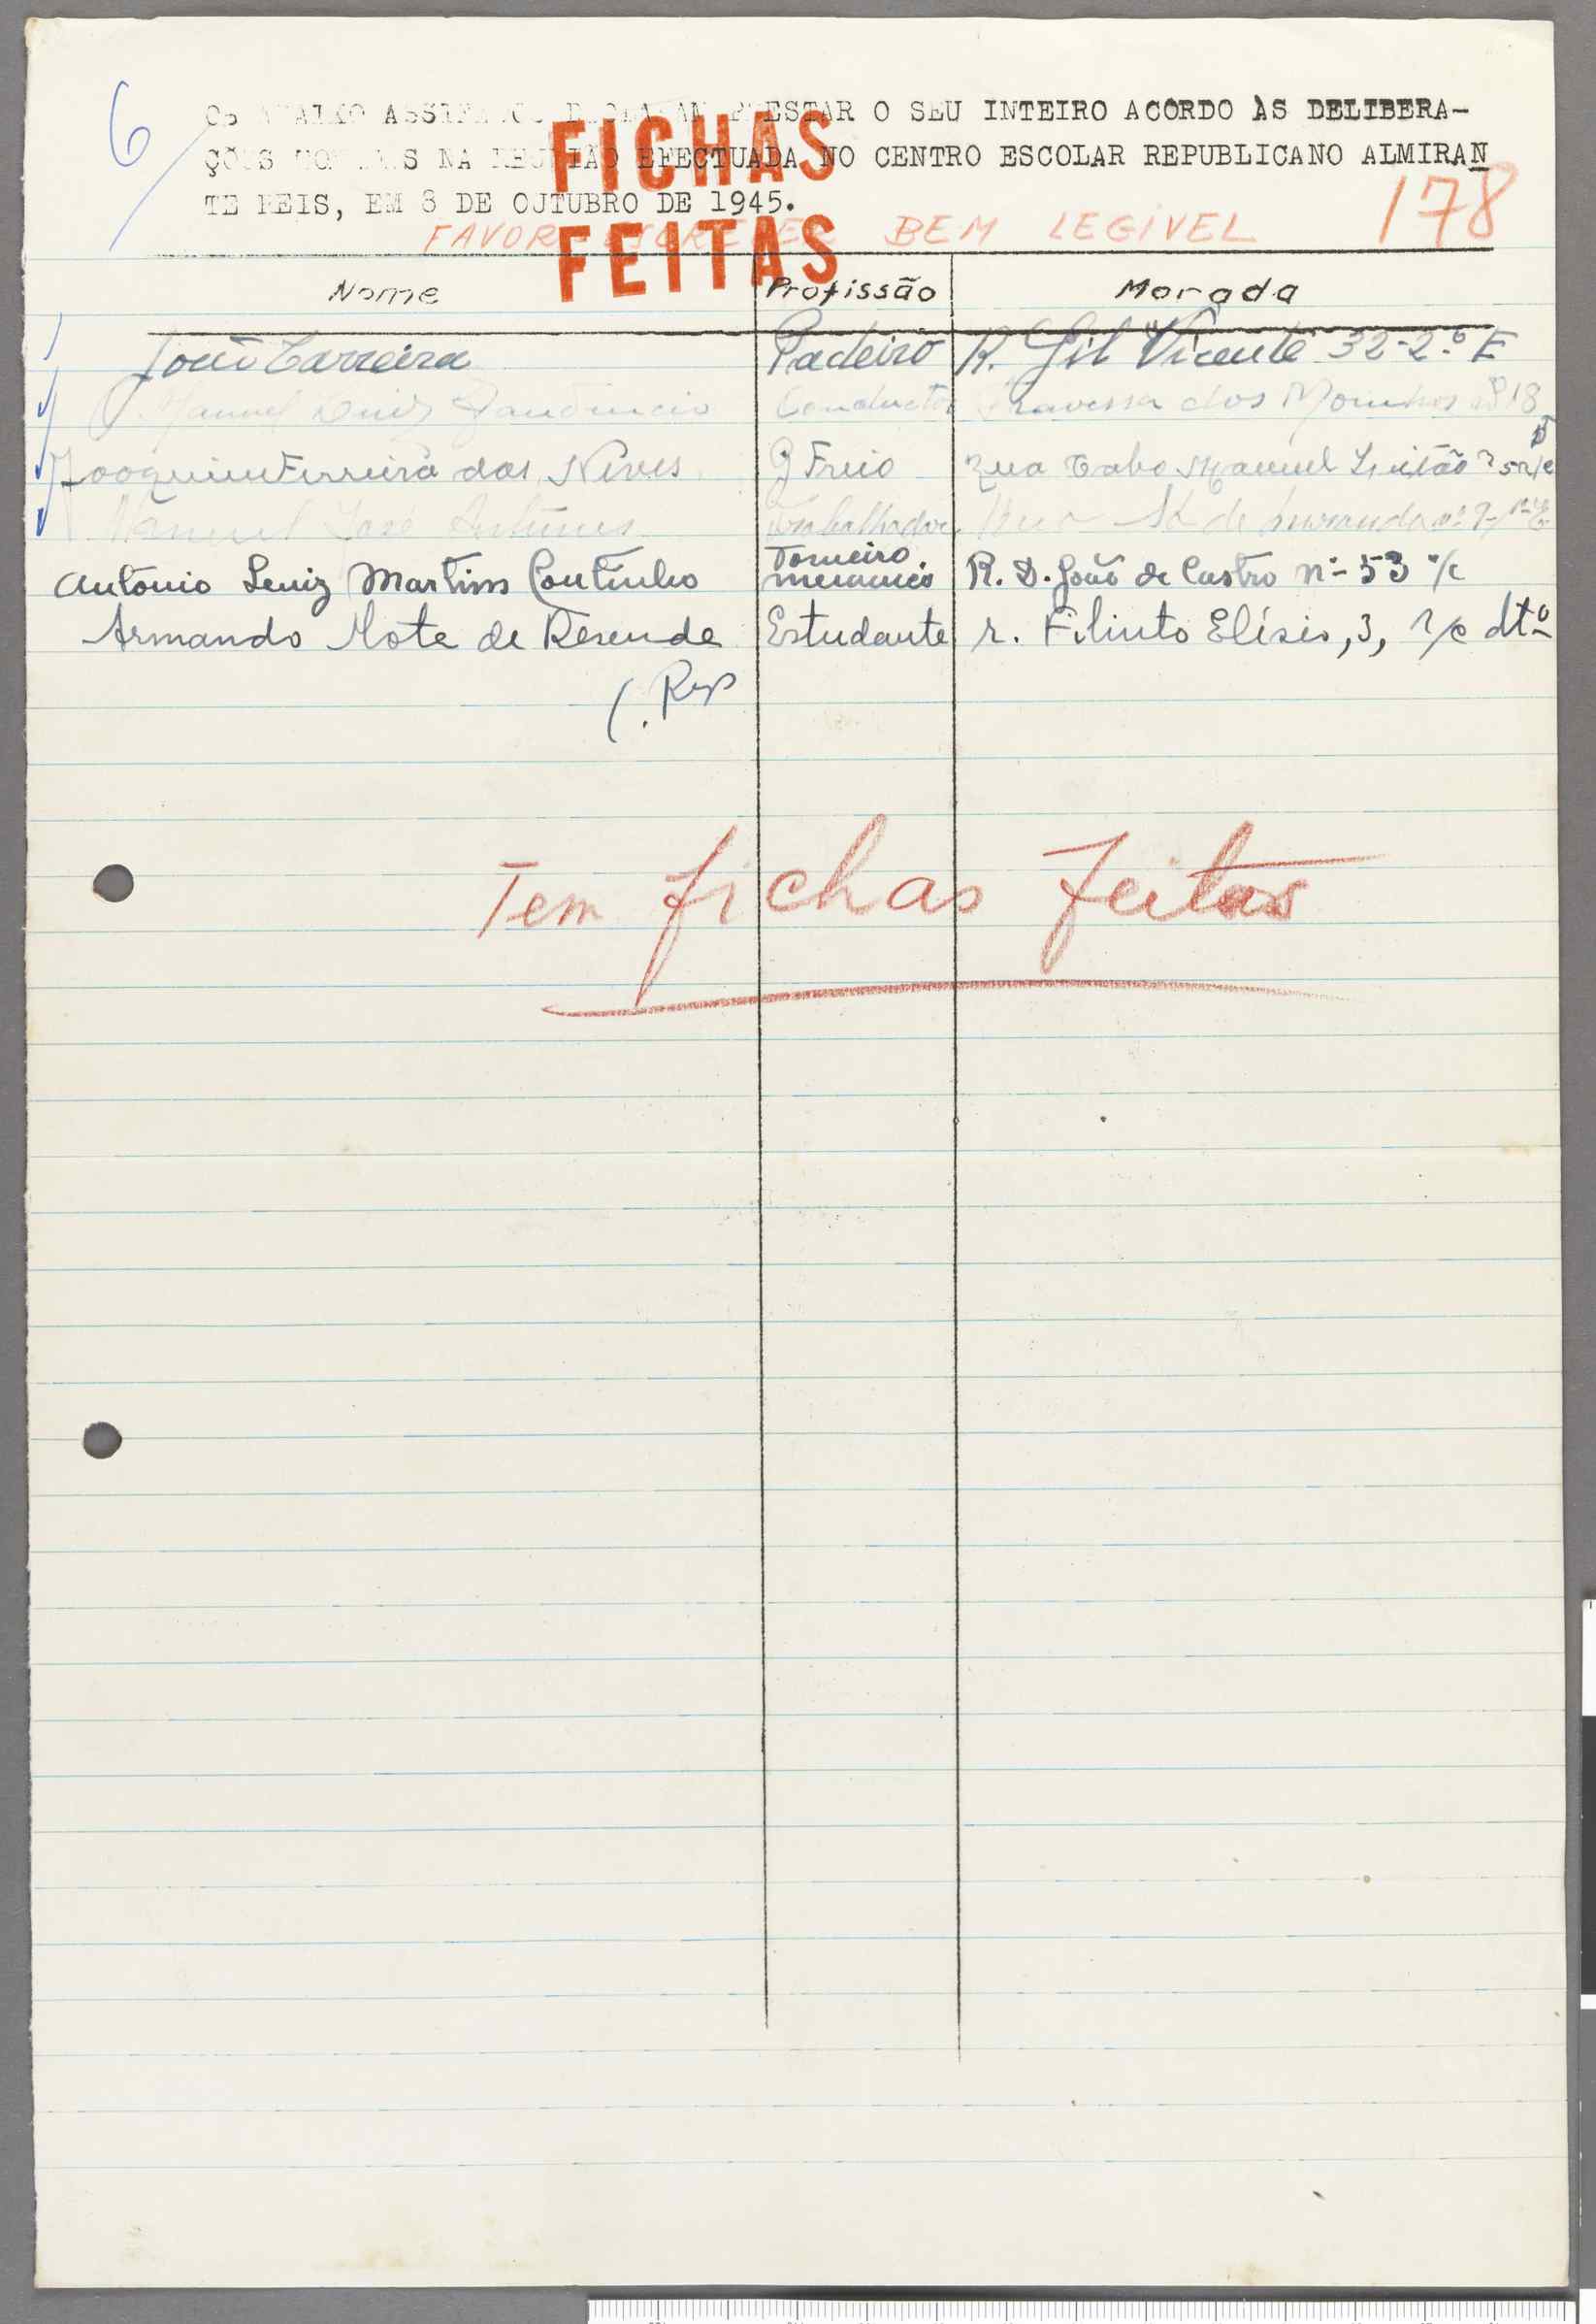 6
OS ABAIXO ASSINADOS DECLARAM PRESTAR O SEU INTEIRO ACORDO ÀS DELIBERA-
ÇÕES TOMADAS NA REUNIÃO EFECTUADA NO CENTRO ESCOLAR REPUBLICANO ALMIRAN
TE REIS, EM 8 DE OUTUBRO DE 1945.
FICHAS
FEITAS
178
FAVOR ESCREVER BEM LEGIVEL
Nome Profissão Morada
João Carreira Padeiro R. Gil Vicente 32-2.º E
Manuel Luiz Conductor Travessa dos Moinhos 18
Joaquim Ferreira das Neves G Freio Rua Cabo Manuel Leitão 5 r/c
Manuel José Antunes Trabalhador
António Luiz Martins Coutinho Torneiro mecanico R. D. João de Castro nº 53 r/c
Armando Mota de Resende Estudante r. Filinto Elísio, 3, r/c dtº
Tem fichas feitas